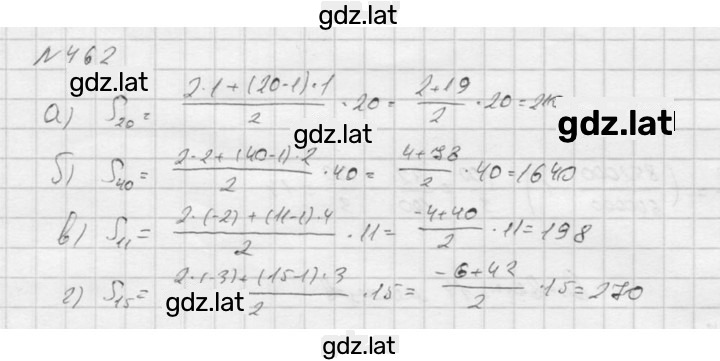 gdz.lat
N 462
gdz.lat
а) S₂₀ = (2·1+(20-1)·1)/2 · 20 = (2+19)/2 · 20 =
gdz.lat
gdz.lat
б) S₄₀ = (2·2+(40-1)·2)/2 · 40 = (4+78)/2 · 40 = 1640
в) S₁₁ = (2·(-2)+(11-1)·4)/2 · 11 = (-4+40)/2 · 11 = 198
г) S₁₅ = (2·(-3)+(15-1)·3)/2 · 15 = (-6+42)/2 · 15 = 270
gdz.lat
gdz.lat